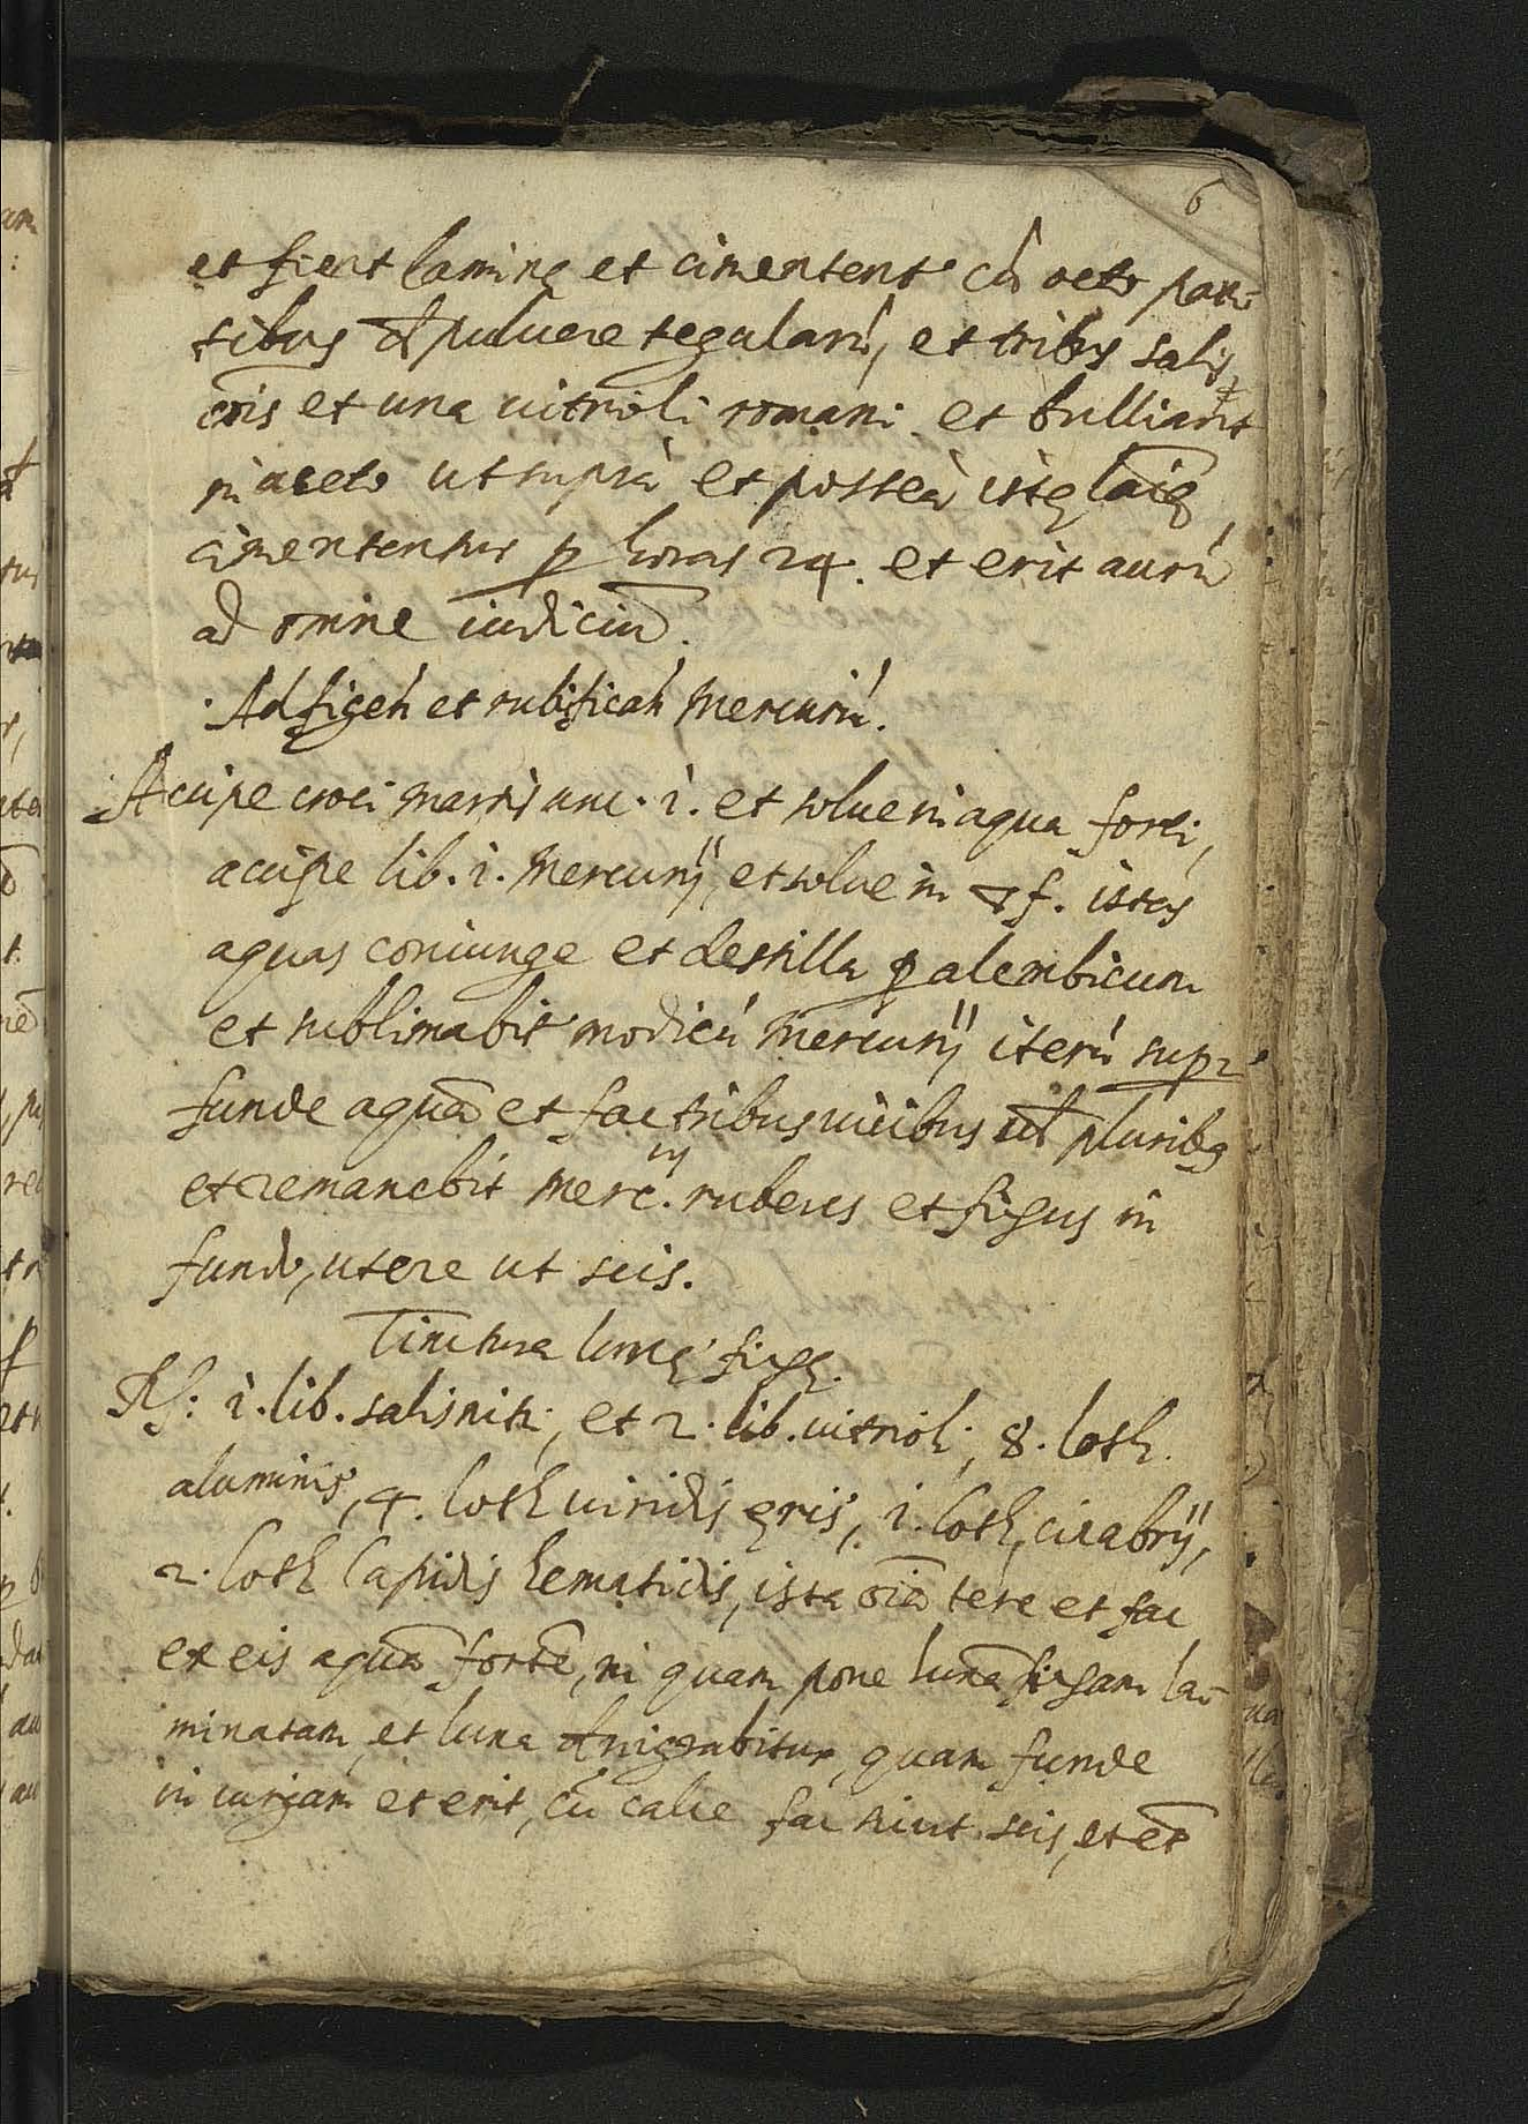 6
et fient laminę et cimentent' cũ octo par-
tibus pulvere tegularũ, et tribus salis
cõis et una vitrioli romani et bulliant
in aceto ut suprà et posteà istę laīę
cimententur p horas 24. et erit aurũ
ad omne iudiciũ.
Ad figeń et rubificań Mercuriũ.
Accipe croci martis unc. i. et solve in aqua forti,
accipe lib. i. Mercurij, et solve in f. istas
aquas coniunge et destilla p alembicum
et sublimabit' modicũ Mercurij iterũ supr
funde aquã et fac tribus vicibus ul pluribꝫ
et remanebit Merc.us rubeus et fixus in
fundo, utere ut scis.
Tinctura lunę fixę.
Rſ: i. lib. salis nitri, et 2. lib. vitrioli, 8. loth
aluminis, 4. loth viridis ęris, i. loth, cinabrij,
2. loth lapidis hematidis, ista oīa tere et fac
ex eis aquã fortē, in quam pone lunã fixam la-
minatam, et luna nigrabitur, quam funde
in virgam et erit, cũ calce fac sicut scis, et et̄